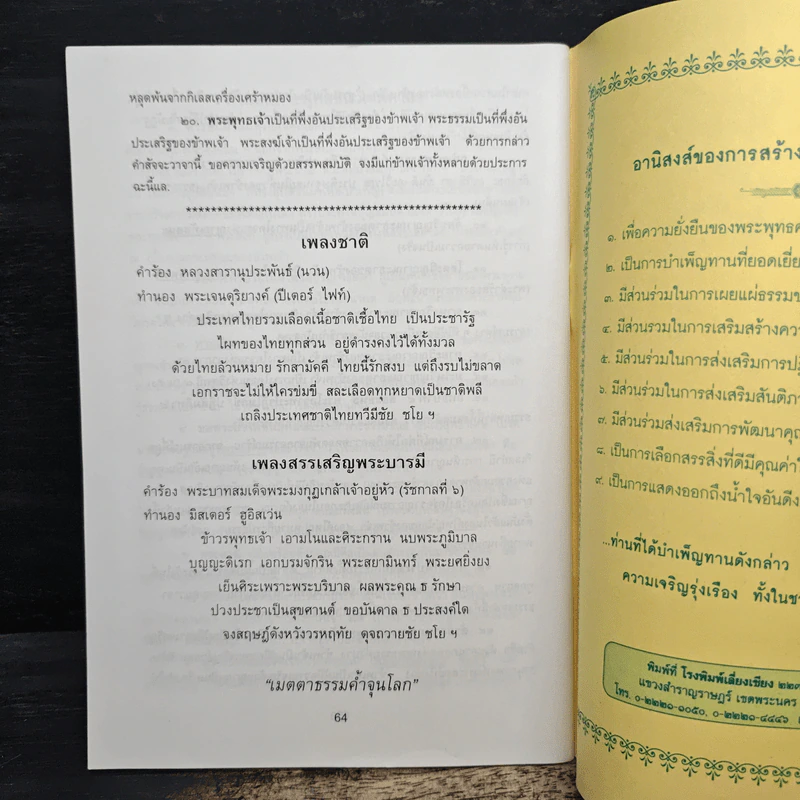 หลุดพ้นจากกิเลสเครื่องเศร้าหมอง
๒๐. พระพุทธเจ้าเป็นที่พึ่งอันประเสริฐของข้าพเจ้า พระธรรมเป็นที่พึ่งอัน
ประเสริฐของข้าพเจ้า พระสงฆ์เจ้าเป็นที่พึ่งอันประเสริฐของข้าพเจ้า ด้วยการกล่าว
คำสัจจะวาจานี้ ขอความเจริญด้วยสรรพสมบัติ จงมีแก่ข้าพเจ้าทั้งหลายด้วยประการ
ฉะนี้แล.
************************************************
เพลงชาติ
คำร้อง หลวงสารานุประพันธ์ (นวน)
ทำนอง พระเจนดุริยางค์ (ปีเตอร์ ไฟท์)
ประเทศไทยรวมเลือดเนื้อชาติเชื้อไทย เป็นประชารัฐ
ไผทของไทยทุกส่วน อยู่ดำรงคงไว้ได้ทั้งมวล
ด้วยไทยล้วนหมาย รักสามัคคี ไทยนี้รักสงบ แต่ถึงรบไม่ขลาด
เอกราชจะไม่ให้ใครข่มขี่ สละเลือดทุกหยาดเป็นชาติพลี
เถลิงประเทศชาติไทยทวีมีชัย ชโย ฯ
เพลงสรรเสริญพระบารมี
คำร้อง พระบาทสมเด็จพระมงกุฎเกล้าเจ้าอยู่หัว (รัชกาลที่ ๖)
ทำนอง มิสเตอร์ ฮูอิสเว่น
ข้าวรพุทธเจ้า เอามโนและศิระกราน นบพระภูมิบาล
บุญญะดิเรก เอกบรมจักริน พระสยามินทร์ พระยศยิ่งยง
เย็นศิระเพราะพระบริบาล ผลพระคุณ ธ รักษา
ปวงประชาเป็นสุขศานต์ ขอบันดาล ธ ประสงค์ใด
จงสฤษฎ์ดังหวังวรหฤทัย ดุจถวายชัย ชโย ฯ
“เมตตาธรรมค้ำจุนโลก”
64
อานิสงส์ของการสร้าง
๑. เพื่อความยั่งยืนของพระพุทธศ
๒. เป็นการบำเพ็ญทานที่ยอดเยี่ย
๓. มีส่วนร่วมในการเผยแผ่ธรรมข
๔. มีส่วนร่วมในการเสริมสร้างคว
๕. มีส่วนร่วมในการส่งเสริมการปฏิ
๖. มีส่วนร่วมในการส่งเสริมสันติภา
๗. มีส่วนร่วมส่งเสริมการพัฒนาคุณ
๘. เป็นการเลือกสรรสิ่งที่ดีมีคุณค่าใ
๙. เป็นการแสดงออกถึงน้ำใจอันดีง
...ท่านที่ได้บำเพ็ญทานดังกล่าว
ความเจริญรุ่งเรือง ทั้งในชา
พิมพ์ที่ โรงพิมพ์เลี่ยงเชียง ๒๒๓
แขวงสำราญราษฎร์ เขตพระนคร
โทร. ๐-๒๒๒๑-๑๐๕๐, ๐-๒๒๒๑-๔๔๔๖